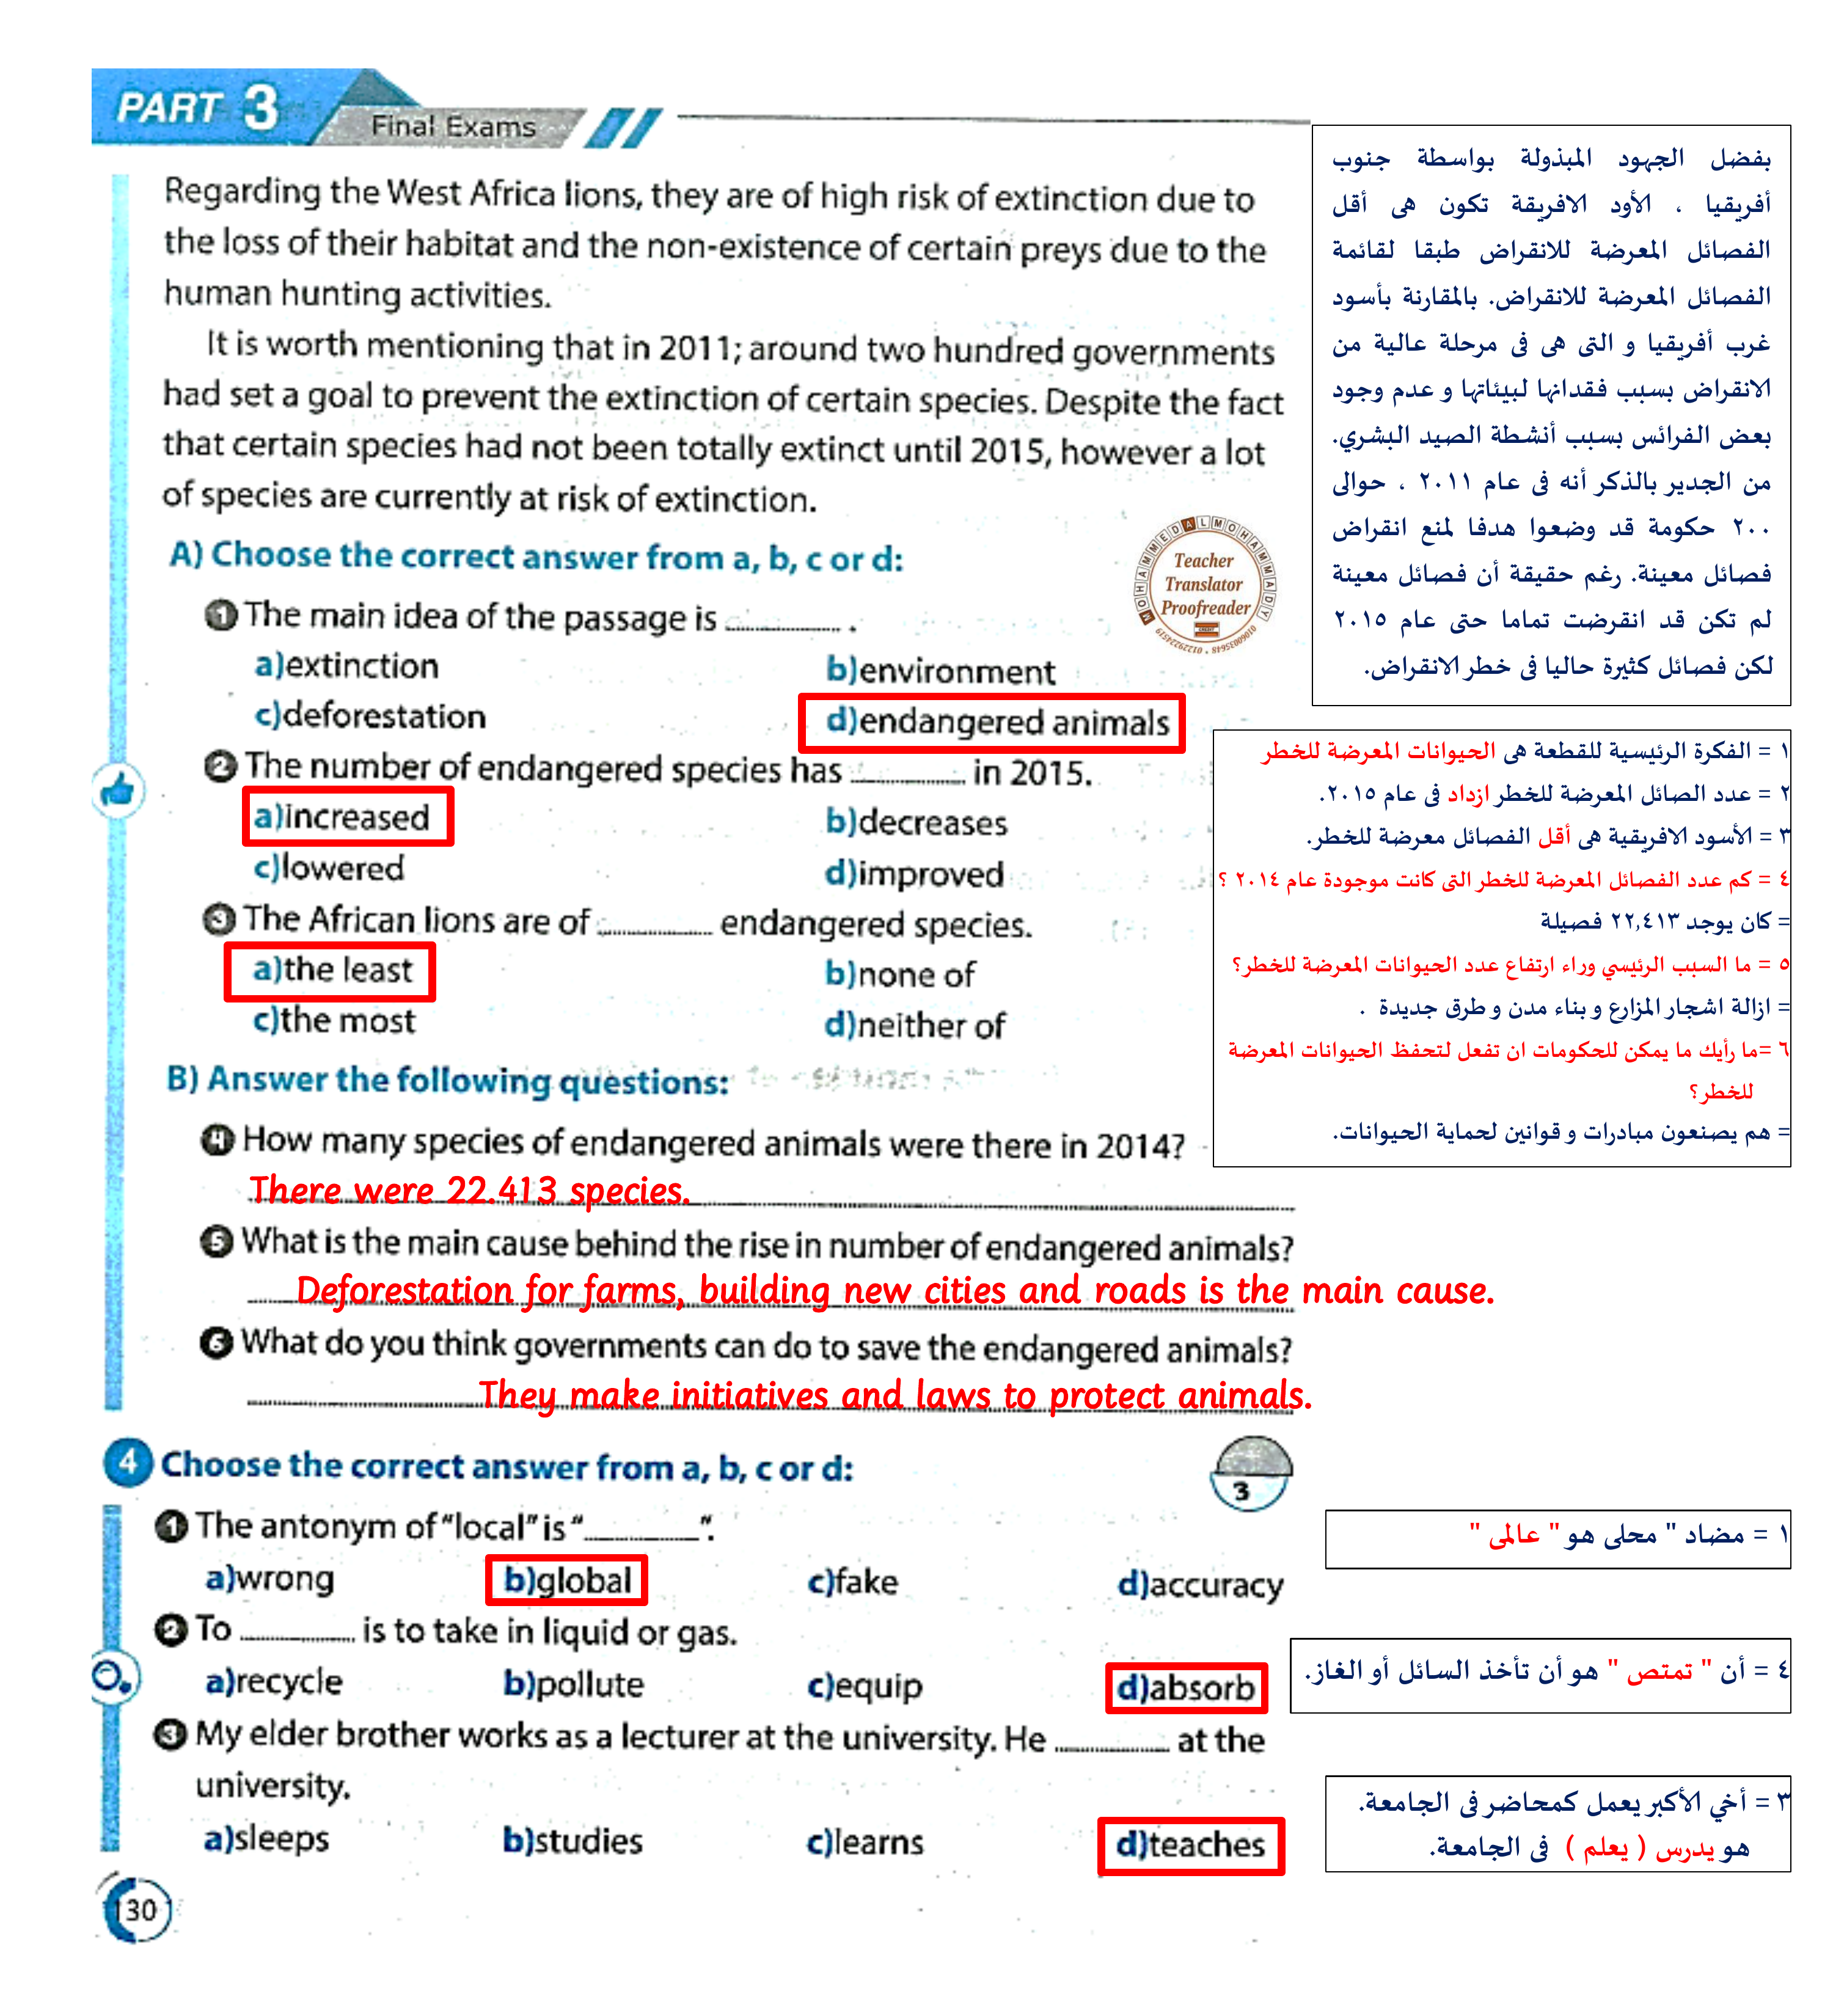 PART 3
Final Exams
Regarding the West Africa lions, they are of high risk of extinction due to
the loss of their habitat and the non-existence of certain preys due to the
human hunting activities.
It is worth mentioning that in 2011; around two hundred governments
had set a goal to prevent the extinction of certain species. Despite the fact
that certain species had not been totally extinct until 2015, however a lot
of species are currently at risk of extinction.
بفضل الجهود المبذولة بواسطة جنوب
أفريقيا ، الأود الافريقة تكون هى أقل
الفصائل المعرضة للانقراض طبقا لقائمة
الفصائل المعرضة للانقراض. بالمقارنة بأسود
غرب أفريقيا و التى هى فى مرحلة عالية من
الانقراض بسبب فقدانها لبيئاتها و عدم وجود
بعض الفرائس بسبب أنشطة الصيد البشري.
من الجدير بالذكر أنه فى عام ٢٠١١ ، حوالى
٢٠٠ حكومة قد وضعوا هدفا لمنع انقراض
فصائل معينة. رغم حقيقة أن فصائل معينة
لم تكن قد انقرضت تماما حتى عام ٢٠١٥
لكن فصائل كثيرة حاليا فى خطر الانقراض.
A) Choose the correct answer from a, b, c or d:
MOHAMMED ALMOHAMMADY
Teacher
Translator
Proofreader
1 The main idea of the passage is .............. .
a)extinction b)environment
c)deforestation d)endangered animals
2 The number of endangered species has .............. in 2015.
a)increased b)decreases
c)lowered d)improved
3 The African lions are of .............. endangered species.
a)the least b)none of
c)the most d)neither of
B) Answer the following questions:
4 How many species of endangered animals were there in 2014?
There were 22.413 species.
5 What is the main cause behind the rise in number of endangered animals?
Deforestation for farms, building new cities and roads is the main cause.
6 What do you think governments can do to save the endangered animals?
They make initiatives and laws to protect animals.
١ = الفكرة الرئيسية للقطعة هى الحيوانات المعرضة للخطر
٢ = عدد الصائل المعرضة للخطر ازداد فى عام ٢٠١٥.
٣ = الأسود الافريقية هى أقل الفصائل معرضة للخطر.
٤ = كم عدد الفصائل المعرضة للخطر التى كانت موجودة عام ٢٠١٤ ؟
= كان يوجد ٢٢,٤١٣ فصيلة
٥ = ما السبب الرئيسي وراء ارتفاع عدد الحيوانات المعرضة للخطر؟
= ازالة اشجار المزارع و بناء مدن و طرق جديدة .
٦ =ما رأيك ما يمكن للحكومات ان تفعل لتحفظ الحيوانات المعرضة
للخطر؟
= هم يصنعون مبادرات و قوانين لحماية الحيوانات.
4 Choose the correct answer from a, b, c or d:
3
1 The antonym of "local" is "..............".
a)wrong b)global c)fake d)accuracy
2 To .............. is to take in liquid or gas.
a)recycle b)pollute c)equip d)absorb
3 My elder brother works as a lecturer at the university. He .............. at the
university.
a)sleeps b)studies c)learns d)teaches
١ = مضاد " محلى هو " عالمى "
٤ = أن " تمتص " هو أن تأخذ السائل أو الغاز.
٣ = أخي الأكبر يعمل كمحاضر فى الجامعة.
هو يدرس ( يعلم ) فى الجامعة.
130